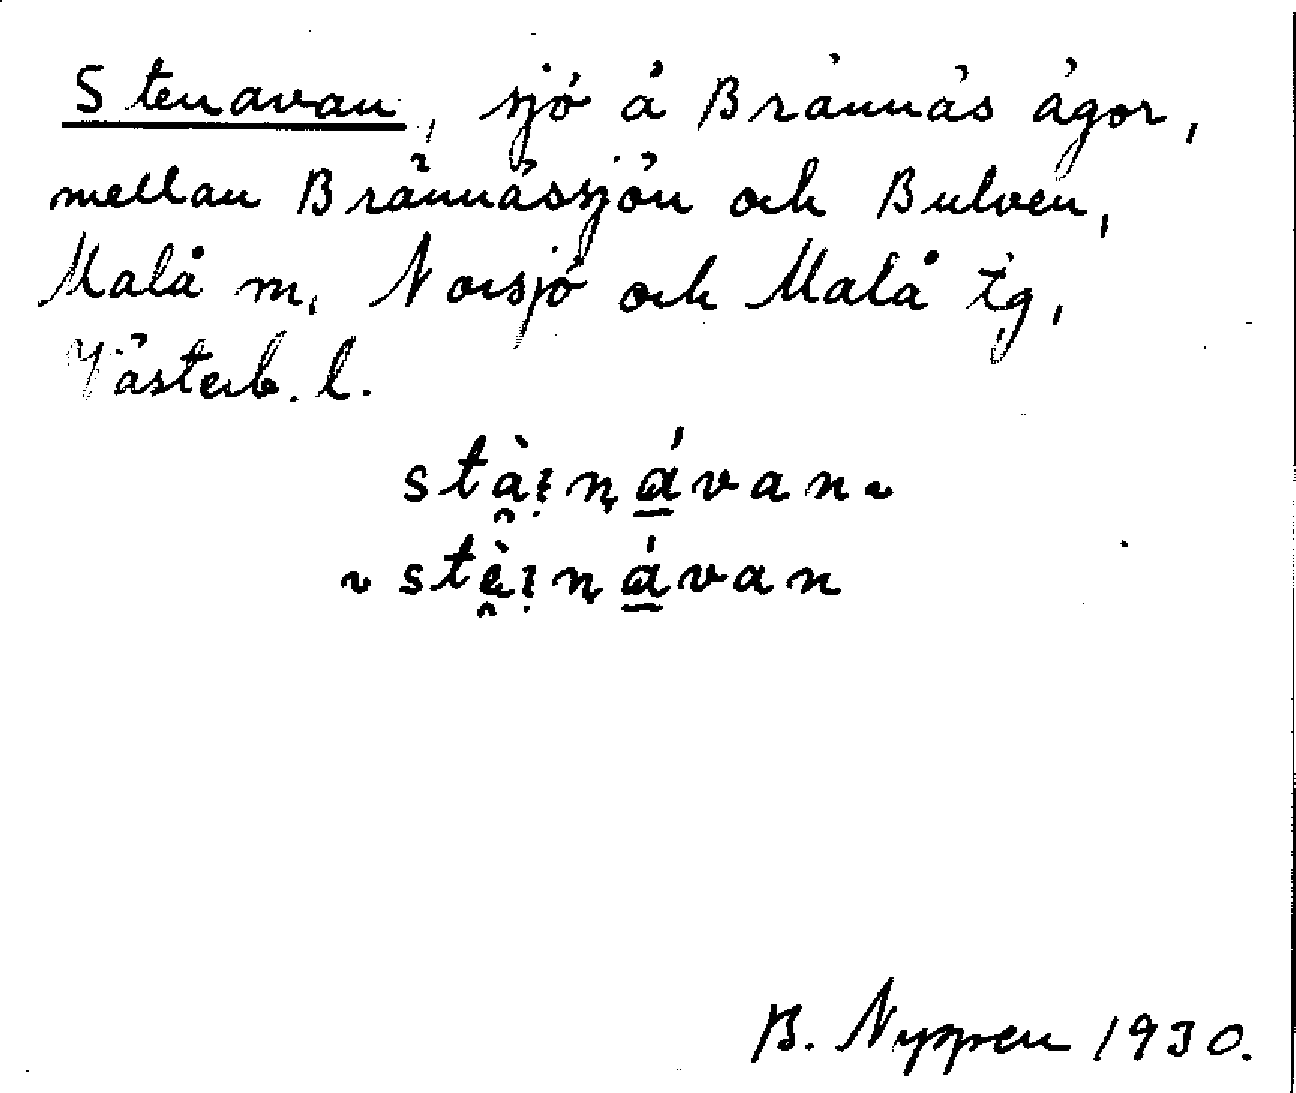 Stenavan, sjö å Brännäs ägor,
mellan Brännässjön och Bulven,
Malå m. Norsjö och Malå tg,
Västerb. l.
stàịṇá̲van ~
~ stèịṇá̲van
B. Nyppen 1930.